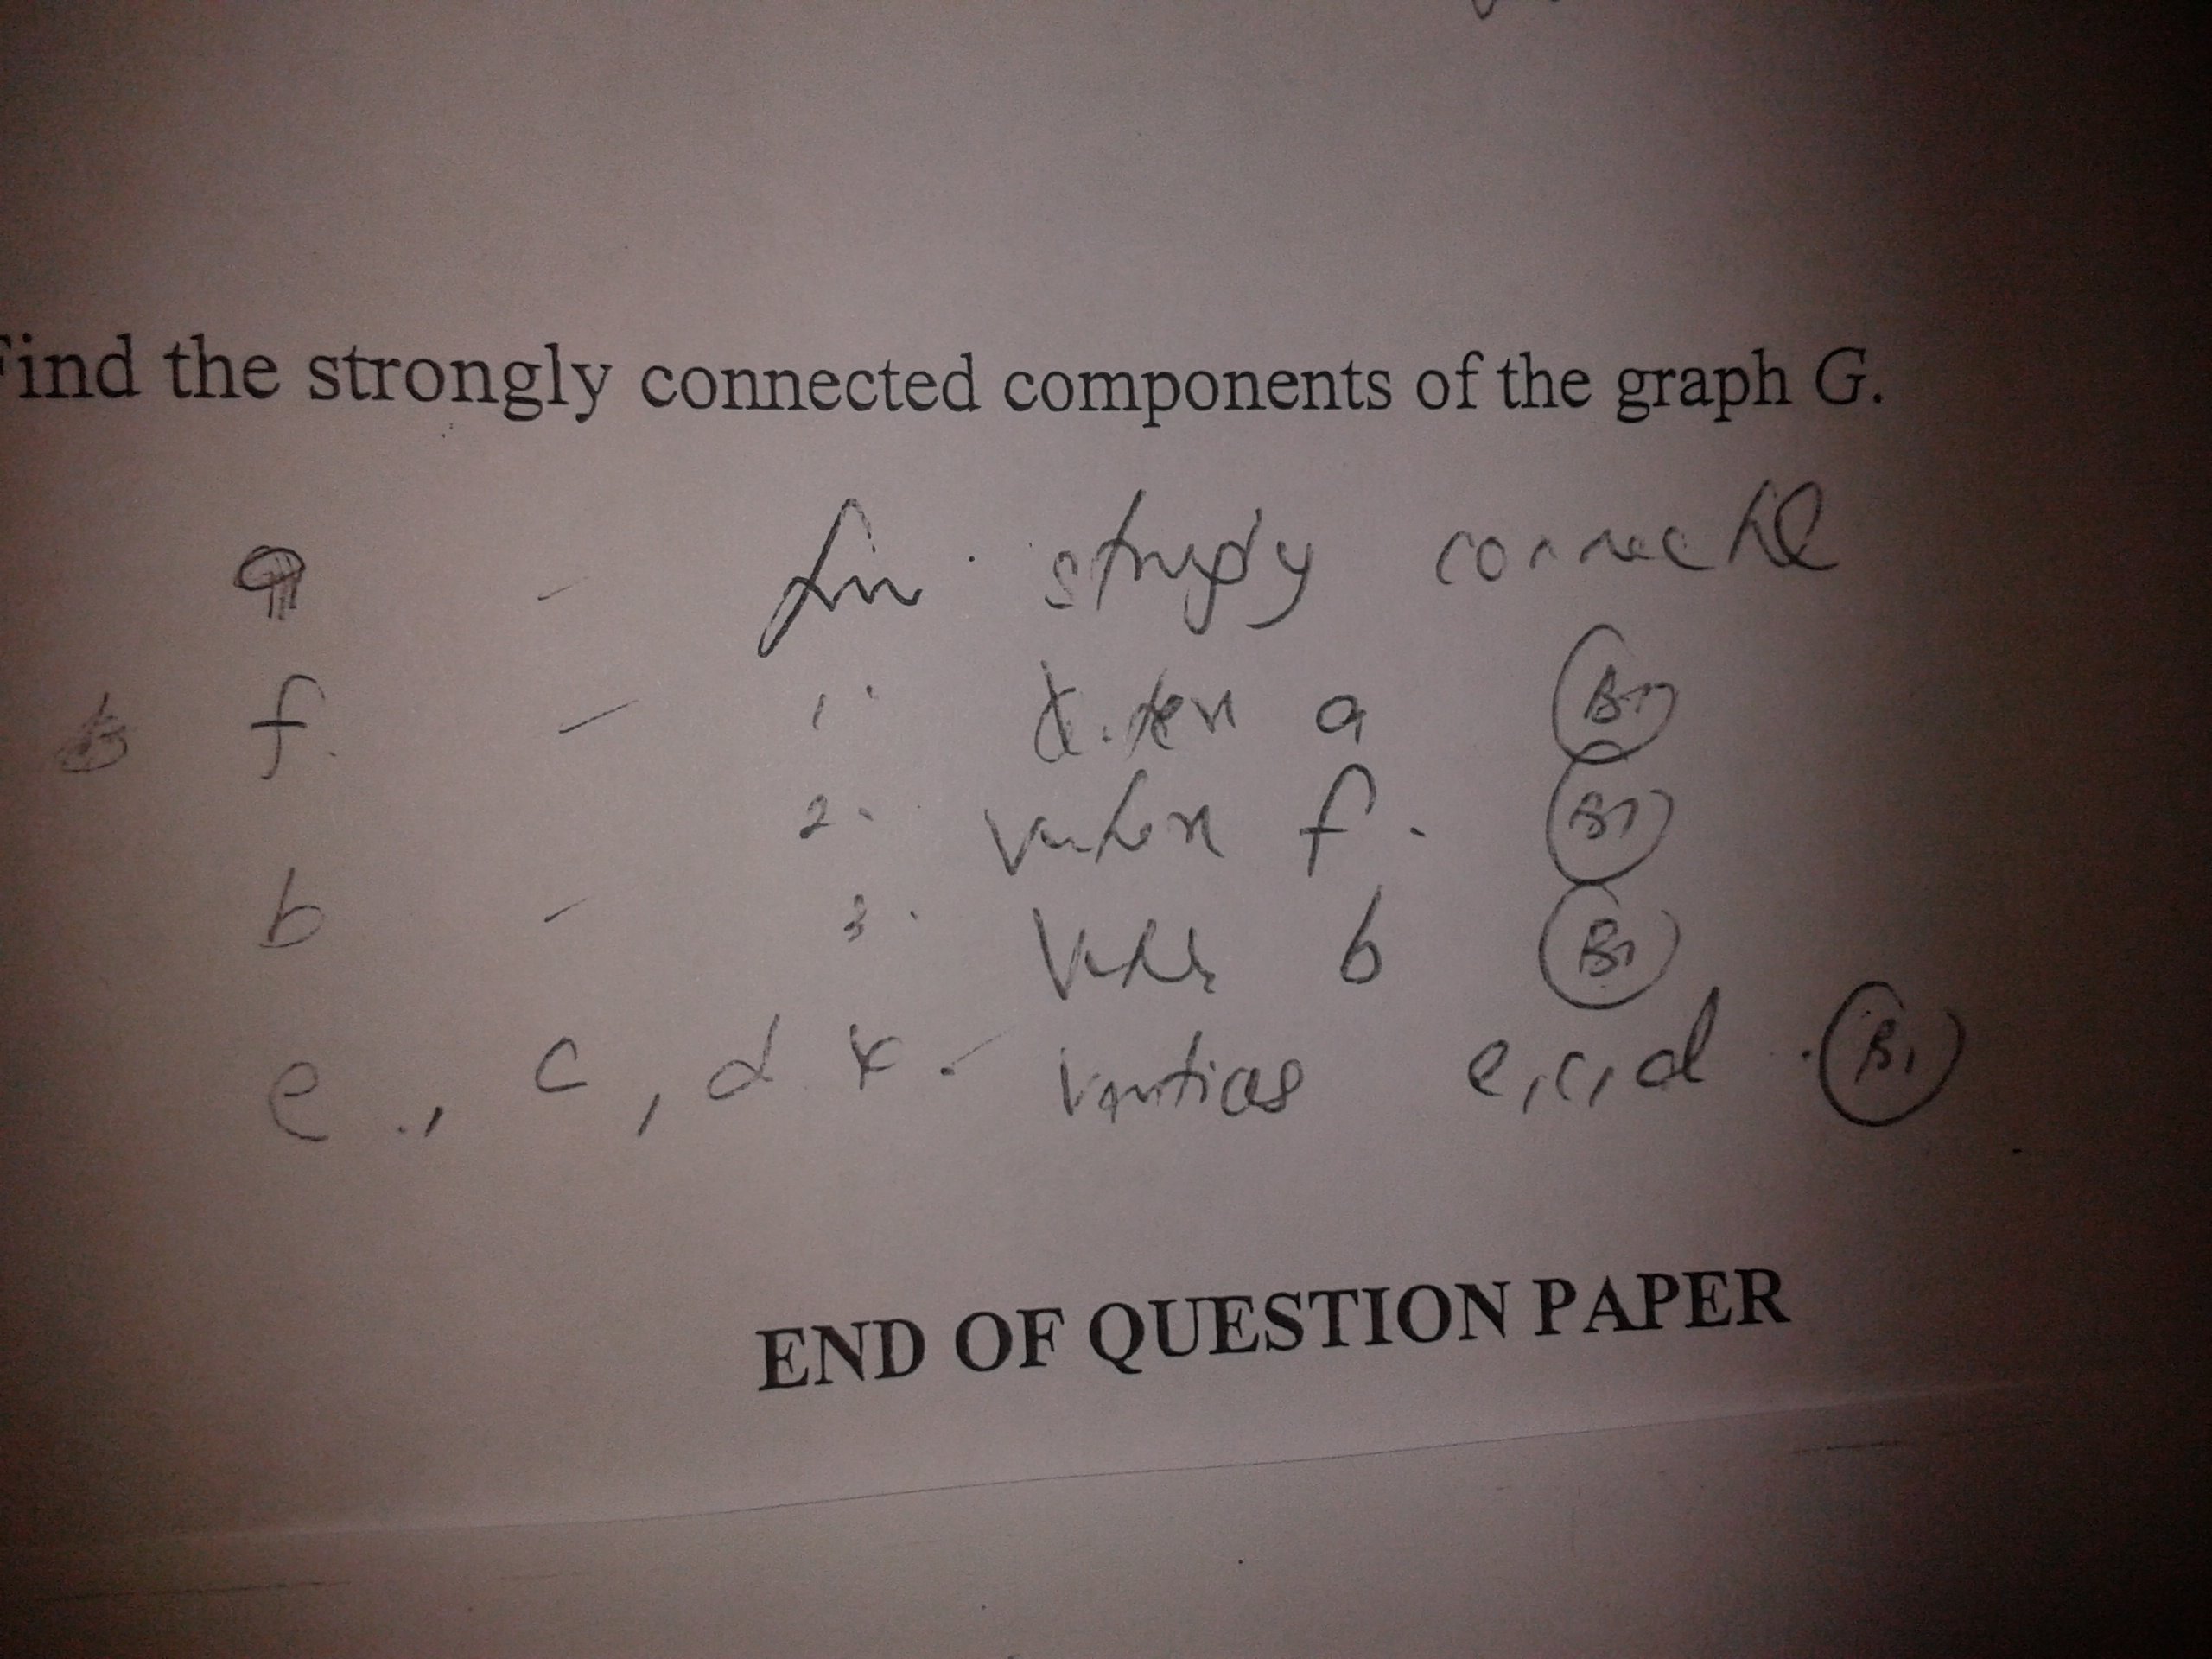 ind the strongly connected components of the graph G.
a - strongly connected
f. - 1. vertex a B1
2. vertex f. B1
b - 3. vertex b B1
e., c, d - vertices e, c, d. B1
END OF QUESTION PAPER